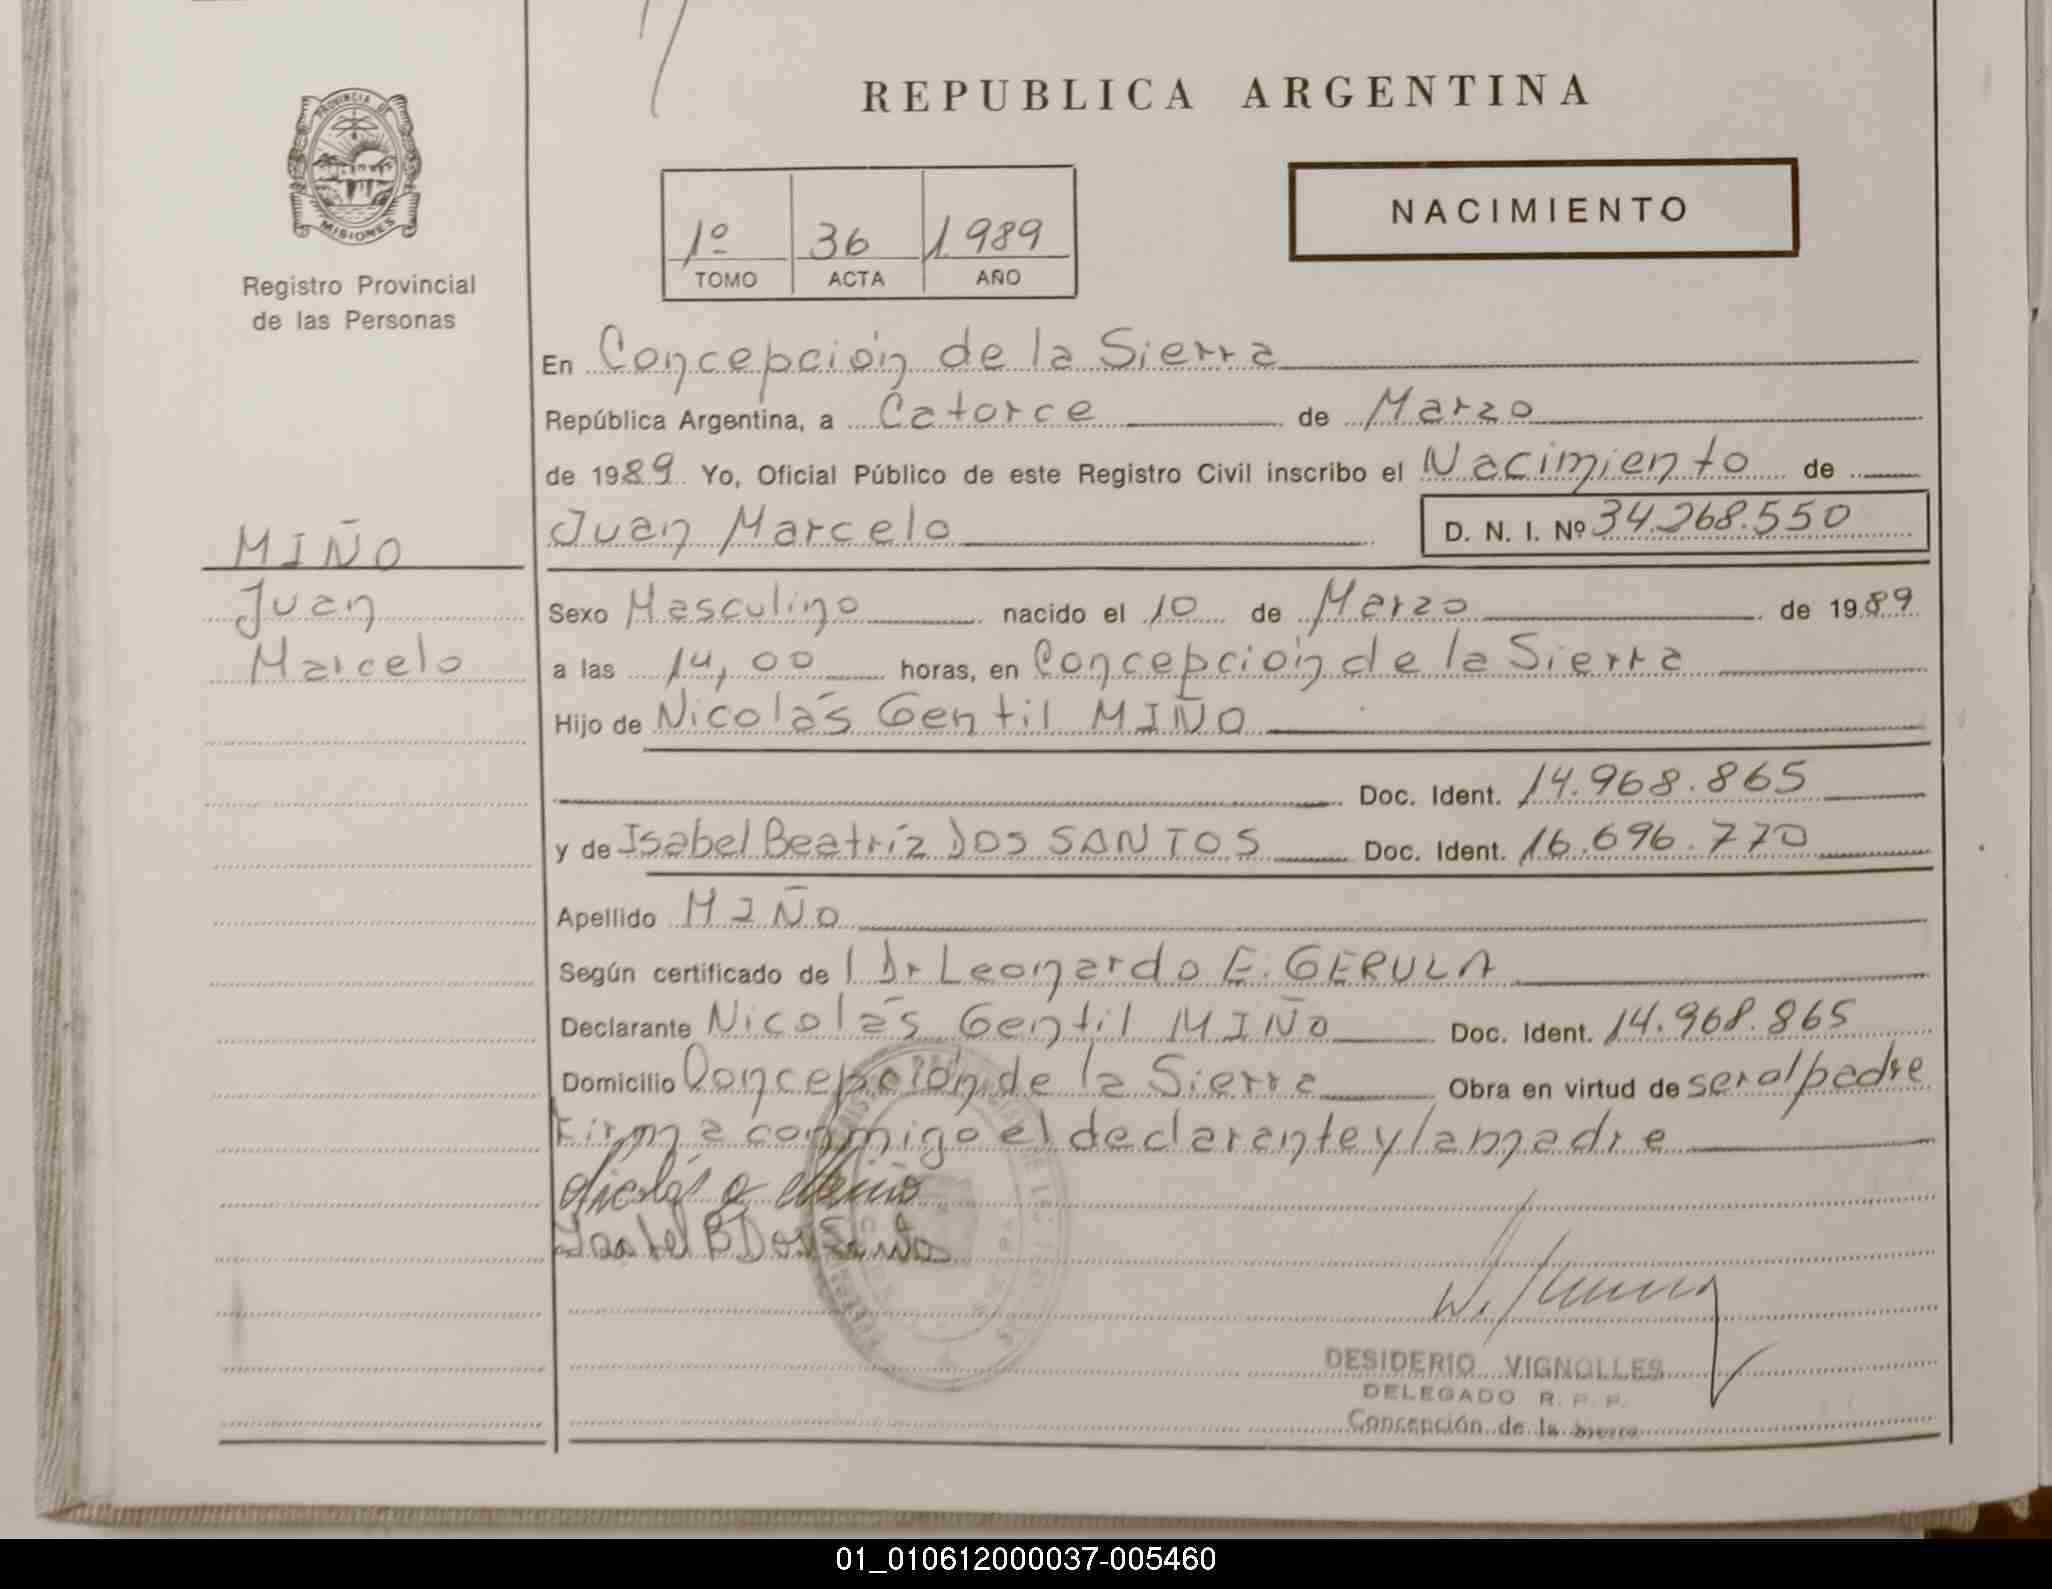 REPUBLICA ARGENTINA
PROVINCIA DE
MISIONES
Registro Provincial
de las Personas
1º 36 1.989
TOMO ACTA AÑO
NACIMIENTO
En Concepción de la Sierra
República Argentina, a Catorce de Marzo
de 1989 Yo, Oficial Público de este Registro Civil inscribo el Nacimiento de
Juan Marcelo D. N. I. Nº 34.268.550
MIÑO
Juan
Marcelo
Sexo Masculino nacido el 10 de Marzo de 1989
a las 14,00 horas, en Concepción de la Sierra
Hijo de Nicolás Gentil MIÑO
Doc. Ident. 14.968.865
y de Isabel Beatríz DOS SANTOS Doc. Ident. 16.696.770
Apellido MIÑO
Según certificado de l Dr Leonardo E. GERULA
Declarante Nicolás Gentil MIÑO Doc. Ident. 14.968.865
Domicilio Concepción de la Sierra Obra en virtud de ser el padre
Firma conmigo el declarante y la madre
Nicolás G Miño
Isabel B Dos Santos
DESIDERIO VIGNOLLES
DELEGADO R. P. P.
Concepción de la Sierra
01_010612000037-005460